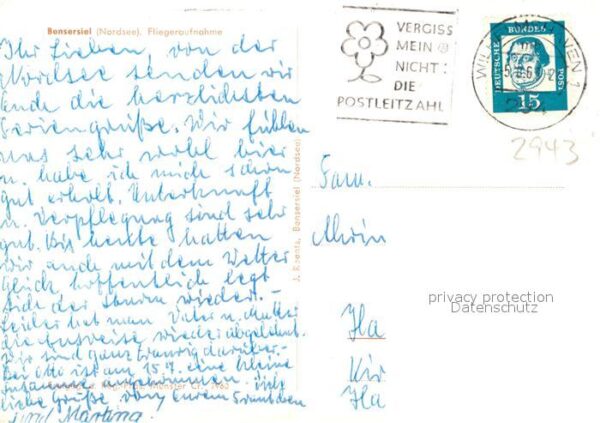 Bensersiel (Nordsee), Fliegeraufnahme
Ihr Lieben, von der
Nordsee senden wir
Euch die herzlichsten
Feriengrüße. Wir fühlen
uns sehr wohl hier
u. habe ich mich schon
gut erholt. Unterkunft
u. Verpflegung sind sehr
gut. Bis heute hatten
wir auch mit dem Wetter
Glück, hoffentlich legt
sich der Sturm wieder. -
Leider hat man Vater u. Mutter
die Ausreise wieder abgelehnt.
Wir sind ganz traurig darüber. -
Bei Otto ist am 15.9. eine kleine
liebe Grüße von Eurem
und Martina.
J. Koentz, Bensersiel (Nordsee)
VERGISS
MEIN
NICHT:
DIE
POSTLEITZAHL
DEUTSCHE BUNDESPOST
15
2943
Fam.
Ila
Kir
Ila
privacy protection
Datenschutz